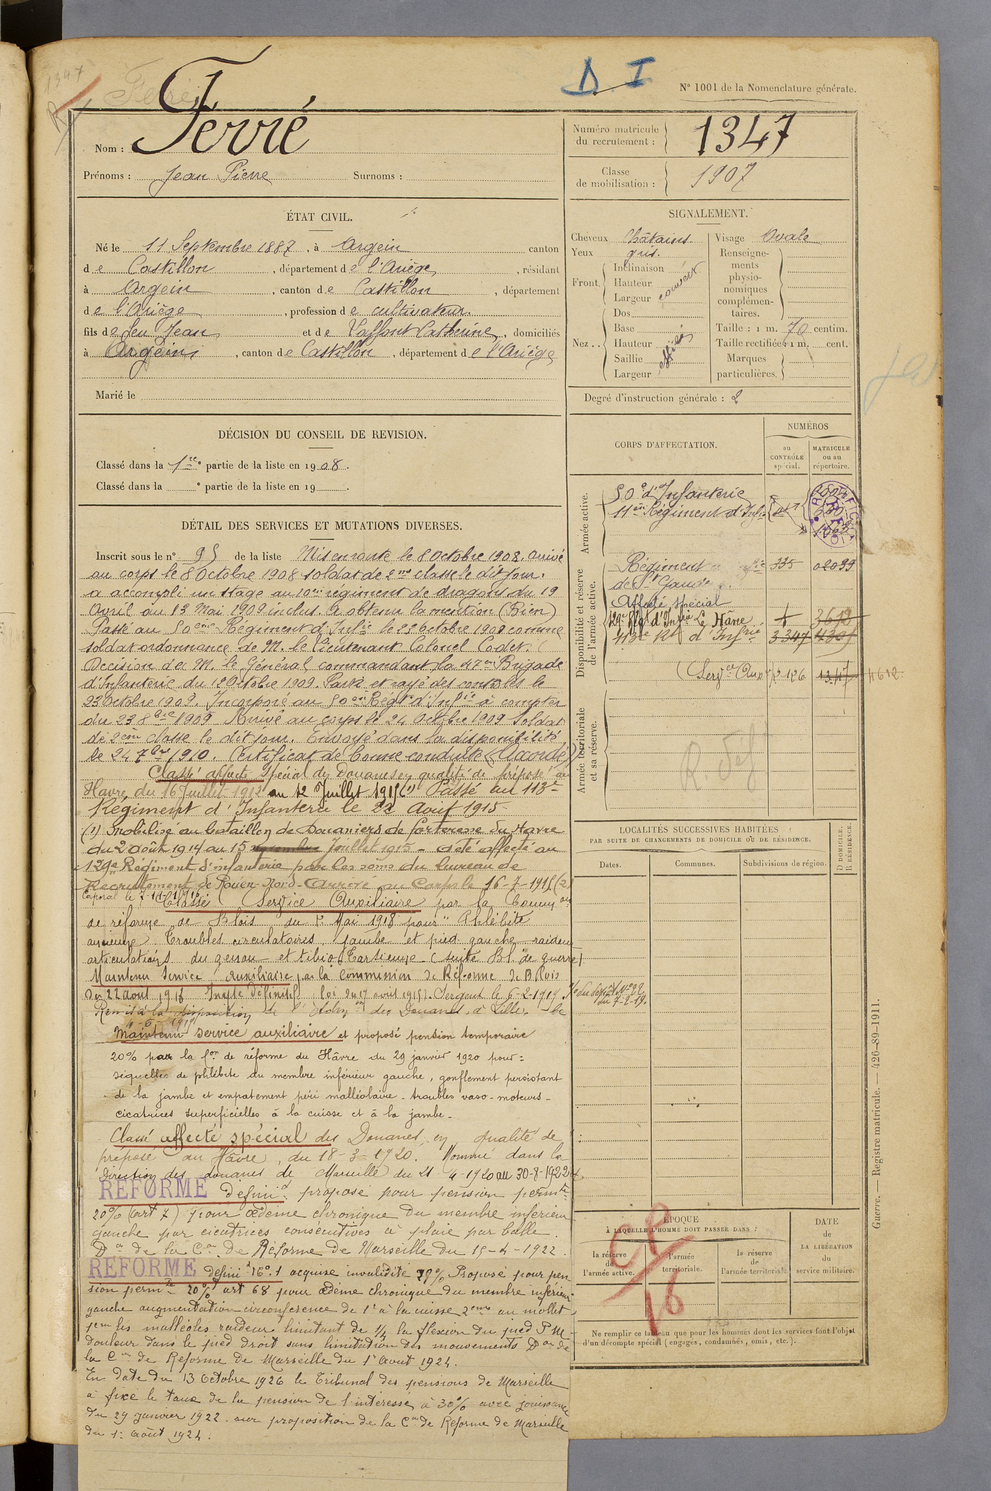 1347
D I
N° 1001 de la Nomenclature générale.
Nom : Ferré
Prénoms : Jean Pierre Surnoms :
Numéro matricule du recrutement : 1347
Classe de mobilisation : 1907
ÉTAT CIVIL.
Né le 11 Septembre 1887, à Argein canton
de Castillon, département de l'Ariège, résidant
à Argein, canton de Castillon, département
de l'Ariège, profession de cultivateur
fils de feu Jean et de Laffont Catherine, domiciliés
à Argein, canton de Castillon, département de l'Ariège
Marié le
SIGNALEMENT.
Cheveux Châtains Visage Ovale
Yeux gris
Front. Inclinaison
Hauteur
Largeur
Nez.. Dos
Base
Hauteur
Saillie
Largeur
Renseignements physionomiques complémentaires.
Taille : 1 m. 70 centim.
Taille rectifiée : 1 m. cent.
Marques particulières.
Degré d'instruction générale : 2
DÉCISION DU CONSEIL DE REVISION.
Classé dans la 1re partie de la liste en 1908.
Classé dans la e partie de la liste en 19
CORPS D'AFFECTATION.
NUMÉROS
au CONTRÔLE spécial.
MATRICULE ou au répertoire.
Armée active.
50e d'Infanterie
11e Régiment d'Infie
Disponibilité et réserve de l'armée active.
Régiment
de St Gaudens 335
Affecté Spécial
129e Rgt d'Infie Le Hâvre
113e Rt d'Infie
(Serv. Aux.)
Armée territoriale et sa réserve.
R. Déf
DÉTAIL DES SERVICES ET MUTATIONS DIVERSES.
Inscrit sous le n° 95 de la liste Mis en route le 8 Octobre 1908. arrivé
au corps le 8 Octobre 1908 soldat de 2me classe le dit jour.
a accompli un stage au 10me régiment de dragons du 19
Avril au 13 Mai 1909 inclus. a obtenu la mention (Bien)
Passé au 50ème Régiment d'Infie le 23 Octobre 1909 comme
soldat ordonnance de M. le Lieutenant Colonel Codet.
Décision de M. le Général commandant la Brigade
d'Infanterie du 12 Octobre 1909. Passé et rayé des contrôles le
23 Octobre 1909. Incorporé au 50ème Régt d'Infie à compter
du 23 8bre 1909 Arrivé au corps le 24 Octobre 1909 Soldat
de 2ème classe le dit jour. Envoyé dans la disponibilité
le 24 7bre 1910. Certificat de bonne conduite (Accordé)
Classé affecté Spécial des Douanes en qualité de préposé au
Havre du 16 Juillet 1912 au 12 Juillet 1915 (1) Passé au 113e
Régiment d'Infanterie le 22 Août 1915
(1) Mobilisé au bataillon de Douaniers de forteresse du Havre
du 2 août 1914 au 15 juillet 1915 - a été affecté au
129e Régiment d'infanterie par les soins du bureau de
Recrutement de Rouen-Nord - Arrivé au Corps le 16-7-1915 (2)
Classé (Service Auxiliaire par la Common
de réforme de Blois du 1er Mai 1918 pour " Phlébite
ancienne. Troubles circulatoires, jambe et pied gauche, raideur
articulations du genou et tibio tarsienne. (suite Bl. de guerre)
Maintenu Service Auxiliaire par la Commission de Réforme de Blois
du 22 août 1918 Inapte Définitif loi du 17 août 1915). Sergent le 6-2-1919
Remis à la disposition de l'Admon des Douanes d. Lille. le
Maintenu service auxiliaire et proposé pension temporaire
20% par la Con de réforme du Hâvre du 29 janvier 1920 pour :
séquelles de phlébite du membre inférieur gauche, gonflement persistant
de la jambe et empatement péri malléolaire - troubles vaso-moteurs -
cicatrices superficielles à la cuisse et à la jambe.
Classé affecté spécial des Douanes en qualité de
préposé au Hâvre, du 18-3-1920. Nommé dans la
direction des douanes de Marseille du 21-4-1920 au 30-8-1922
REFORMÉ définit. proposé pour pension permte
20% (art 7) pour oedème chronique du membre inférieur
gauche par cicatrices consécutives à plaie par balle.
Don de la Con de Réforme de Marseille du 15-4-1922.
REFORMÉ définit n°1 acquise invalidité Proposé pour pension
permte 20% art 68 pour oedème chronique du membre inférieur
gauche augmentation circonférence de 1c à la cuisse 2cms au mollet
1cm les malléoles raideur limitant de 1/4 la flexion du pied P.M.
Douleur dans le pied droit sans limitation des mouvements Don de
la Con de Réforme de Marseille du 1er Août 1924.
En date du 13 Octobre 1926 le Tribunal des pensions de Marseille
a fixé le taux de la pension de l'intéressé à 30% avec jouissance
du 29 janvier 1922 - sur proposition de la Con de Réforme de Marseille
du 1er août 1924.
LOCALITÉS SUCCESSIVES HABITÉES
PAR SUITE DE CHANGEMENTS DE DOMICILE OU DE RÉSIDENCE.
Dates. Communes. Subdivisions de région. D DOMICILE. R RÉSIDENCE.
ÉPOQUE
À LAQUELLE L'HOMME DOIT PASSER DANS :
la réserve de l'armée active.
l'armée territoriale.
la réserve de l'armée territoriale.
DATE
DE
LA LIBÉRATION
du
service militaire.
CP
16
Ne remplir ce tableau que pour les hommes dont les services font l'objet
d'un décompte spécial (engagés, condamnés, omis, etc.).
Guerre. — Registre matricule. — 426-89-1911.